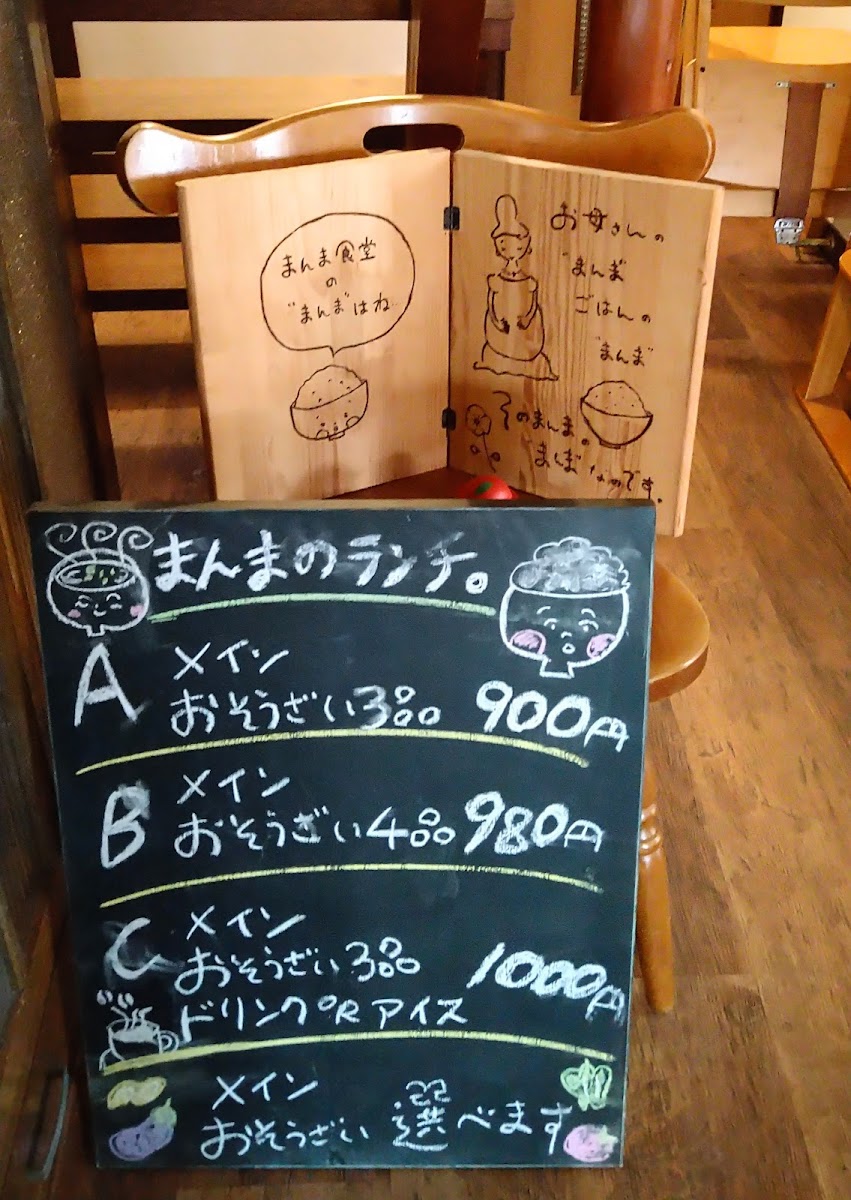 まんま食堂
の
"まんま"はね…
お母さんの
"まんま"
ごはんの
"まんま"
そのまんまの
まんまなのです。
まんまのランチ。
A メイン
おそうざい3品 900円
B メイン
おそうざい4品 980円
C メイン
おそうざい3品 1000円
ドリンク OR アイス
メイン
おそうざい 選べます